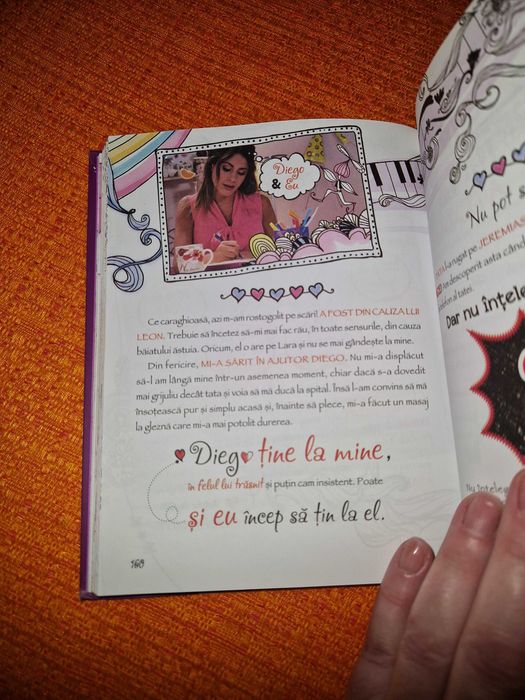 Diego
& Eu
Ce caraghioasă, azi m-am rostogolit pe scări! A FOST DIN CAUZA LUI
LEON. Trebuie să încetez să-mi mai fac rău, în toate sensurile, din cauza
băiatului ăstuia. Oricum, el o are pe Lara și nu se mai gândește la mine.
Din fericire, MI-A SĂRIT ÎN AJUTOR DIEGO. Nu mi-a displăcut
să-l am lângă mine într-un asemenea moment, chiar dacă s-a dovedit
mai grijuliu decât tata și voia să mă ducă la spital. Însă l-am convins să mă
însoțească pur și simplu acasă și, înainte să plece, mi-a făcut un masaj
la gleznă care mi-a mai potolit durerea.
Diego ține la mine,
în felul lui trăsnit și puțin cam insistent. Poate
și eu încep să țin la el.
160
Nu pot
la rugat pe JEREMIAS
descoperit asta când
telefon al tatei.
Dar nu înțele
Nu înțeleg